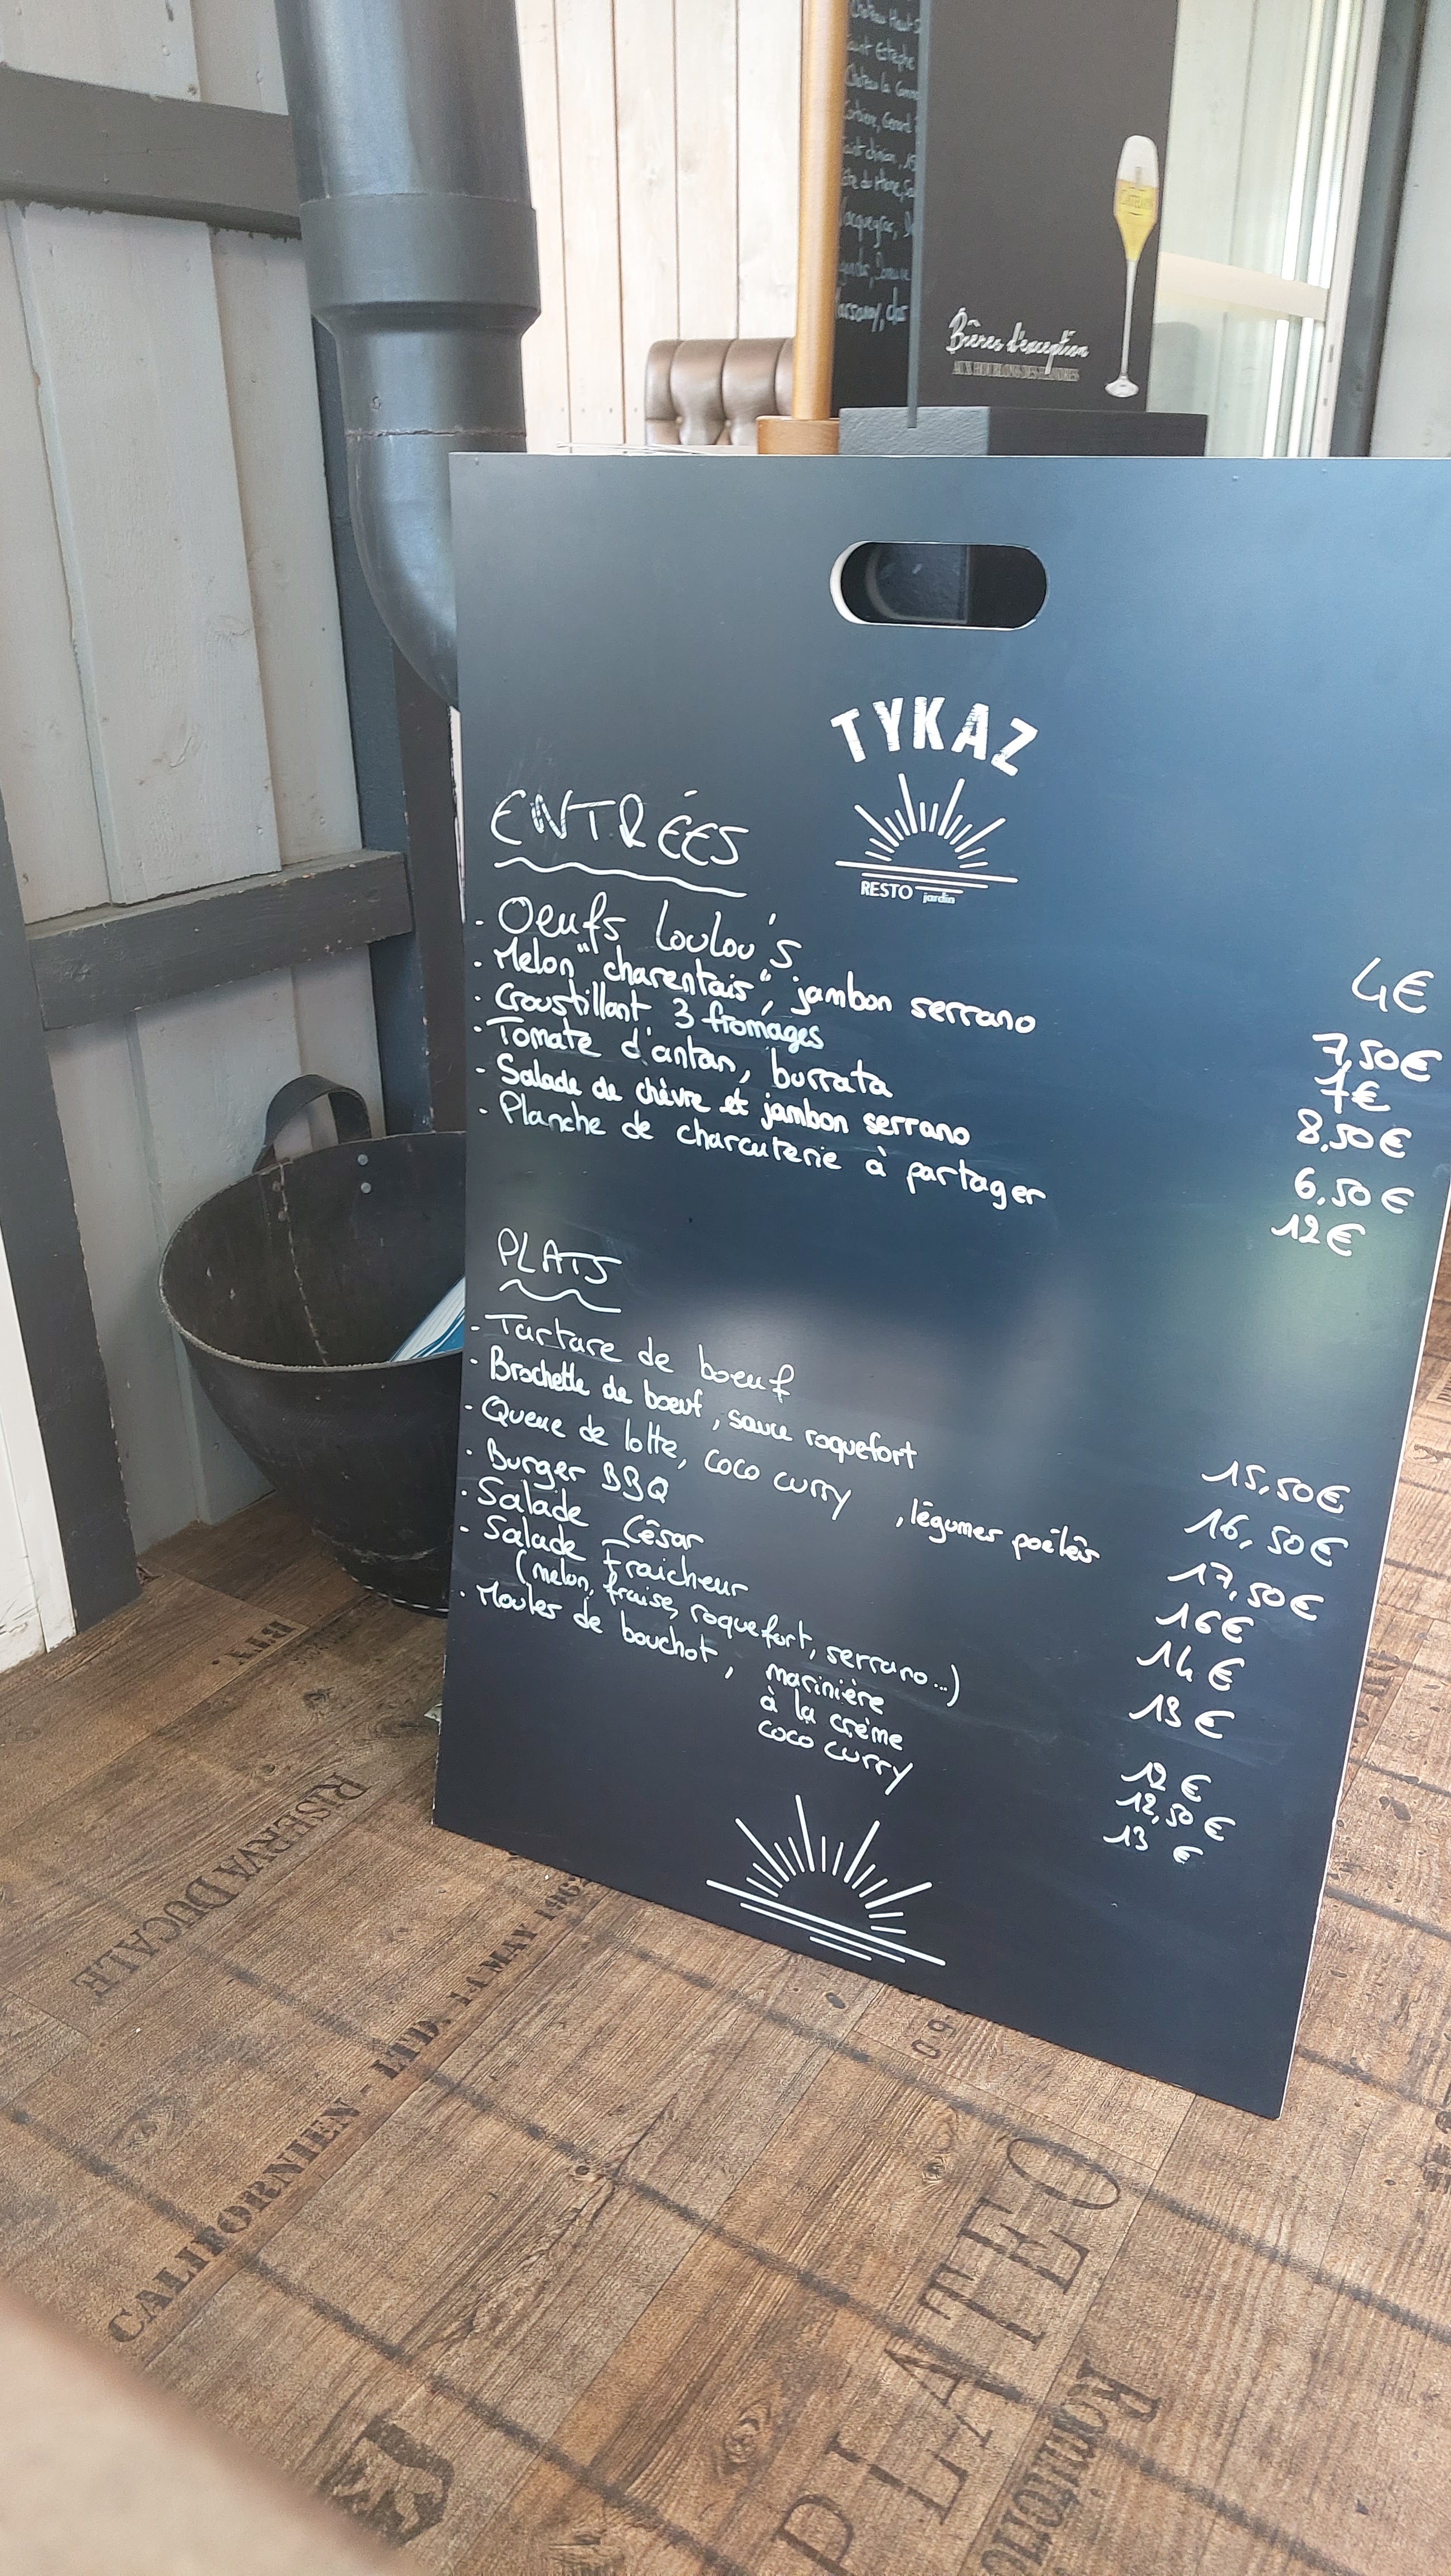 Saint Estèphe
Bières d'exception
TYKAZ
RESTO jardin
ENTRÉES
- Oeufs Loulou's 4€
- Melon "charentais", jambon serrano 7,50€
- Croustillant 3 fromages 7€
- Tomate d'antan, burrata 8,50€
- Salade de chèvre et jambon serrano 6,50€
- Planche de charcuterie à partager 12€
PLATS
- Tartare de boeuf 15,50€
- Brochette de boeuf, sauce roquefort 16,50€
- Queue de lotte, coco curry, légumes poêlés 17,50€
- Burger BBQ 16€
- Salade César 14€
- Salade Fraicheur 13€
(melon, fraise, roquefort, serrano...)
- Moules de bouchot, marinière 12€
à la crème 12,50€
coco curry 13€
RISERVA DUCALE
CALIFORNIEN - LTD. 14 MAY 196
60
PLATEO